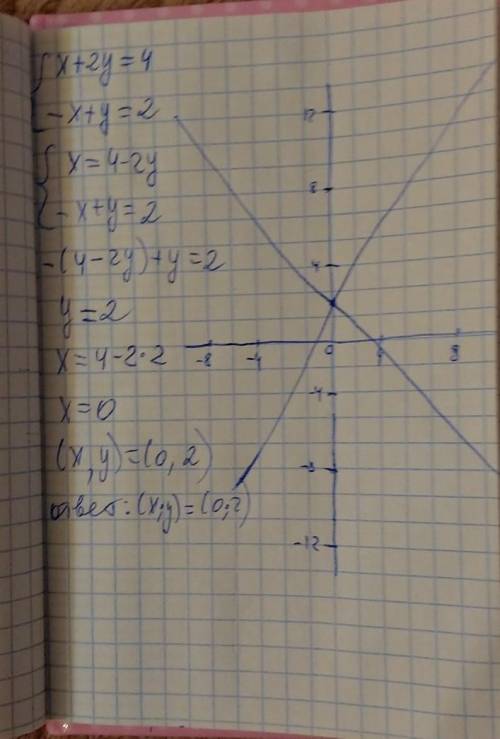 x+2y=4
-x+y=2
x=4-2y
-x+y=2
-(4-2y)+y=2
y=2
x=4-2·2
x=0
(x,y)=(0,2)
ответ: (x;y)=(0;2)
12
8
4
-8 -4 0 4 8
-4
-8
-12